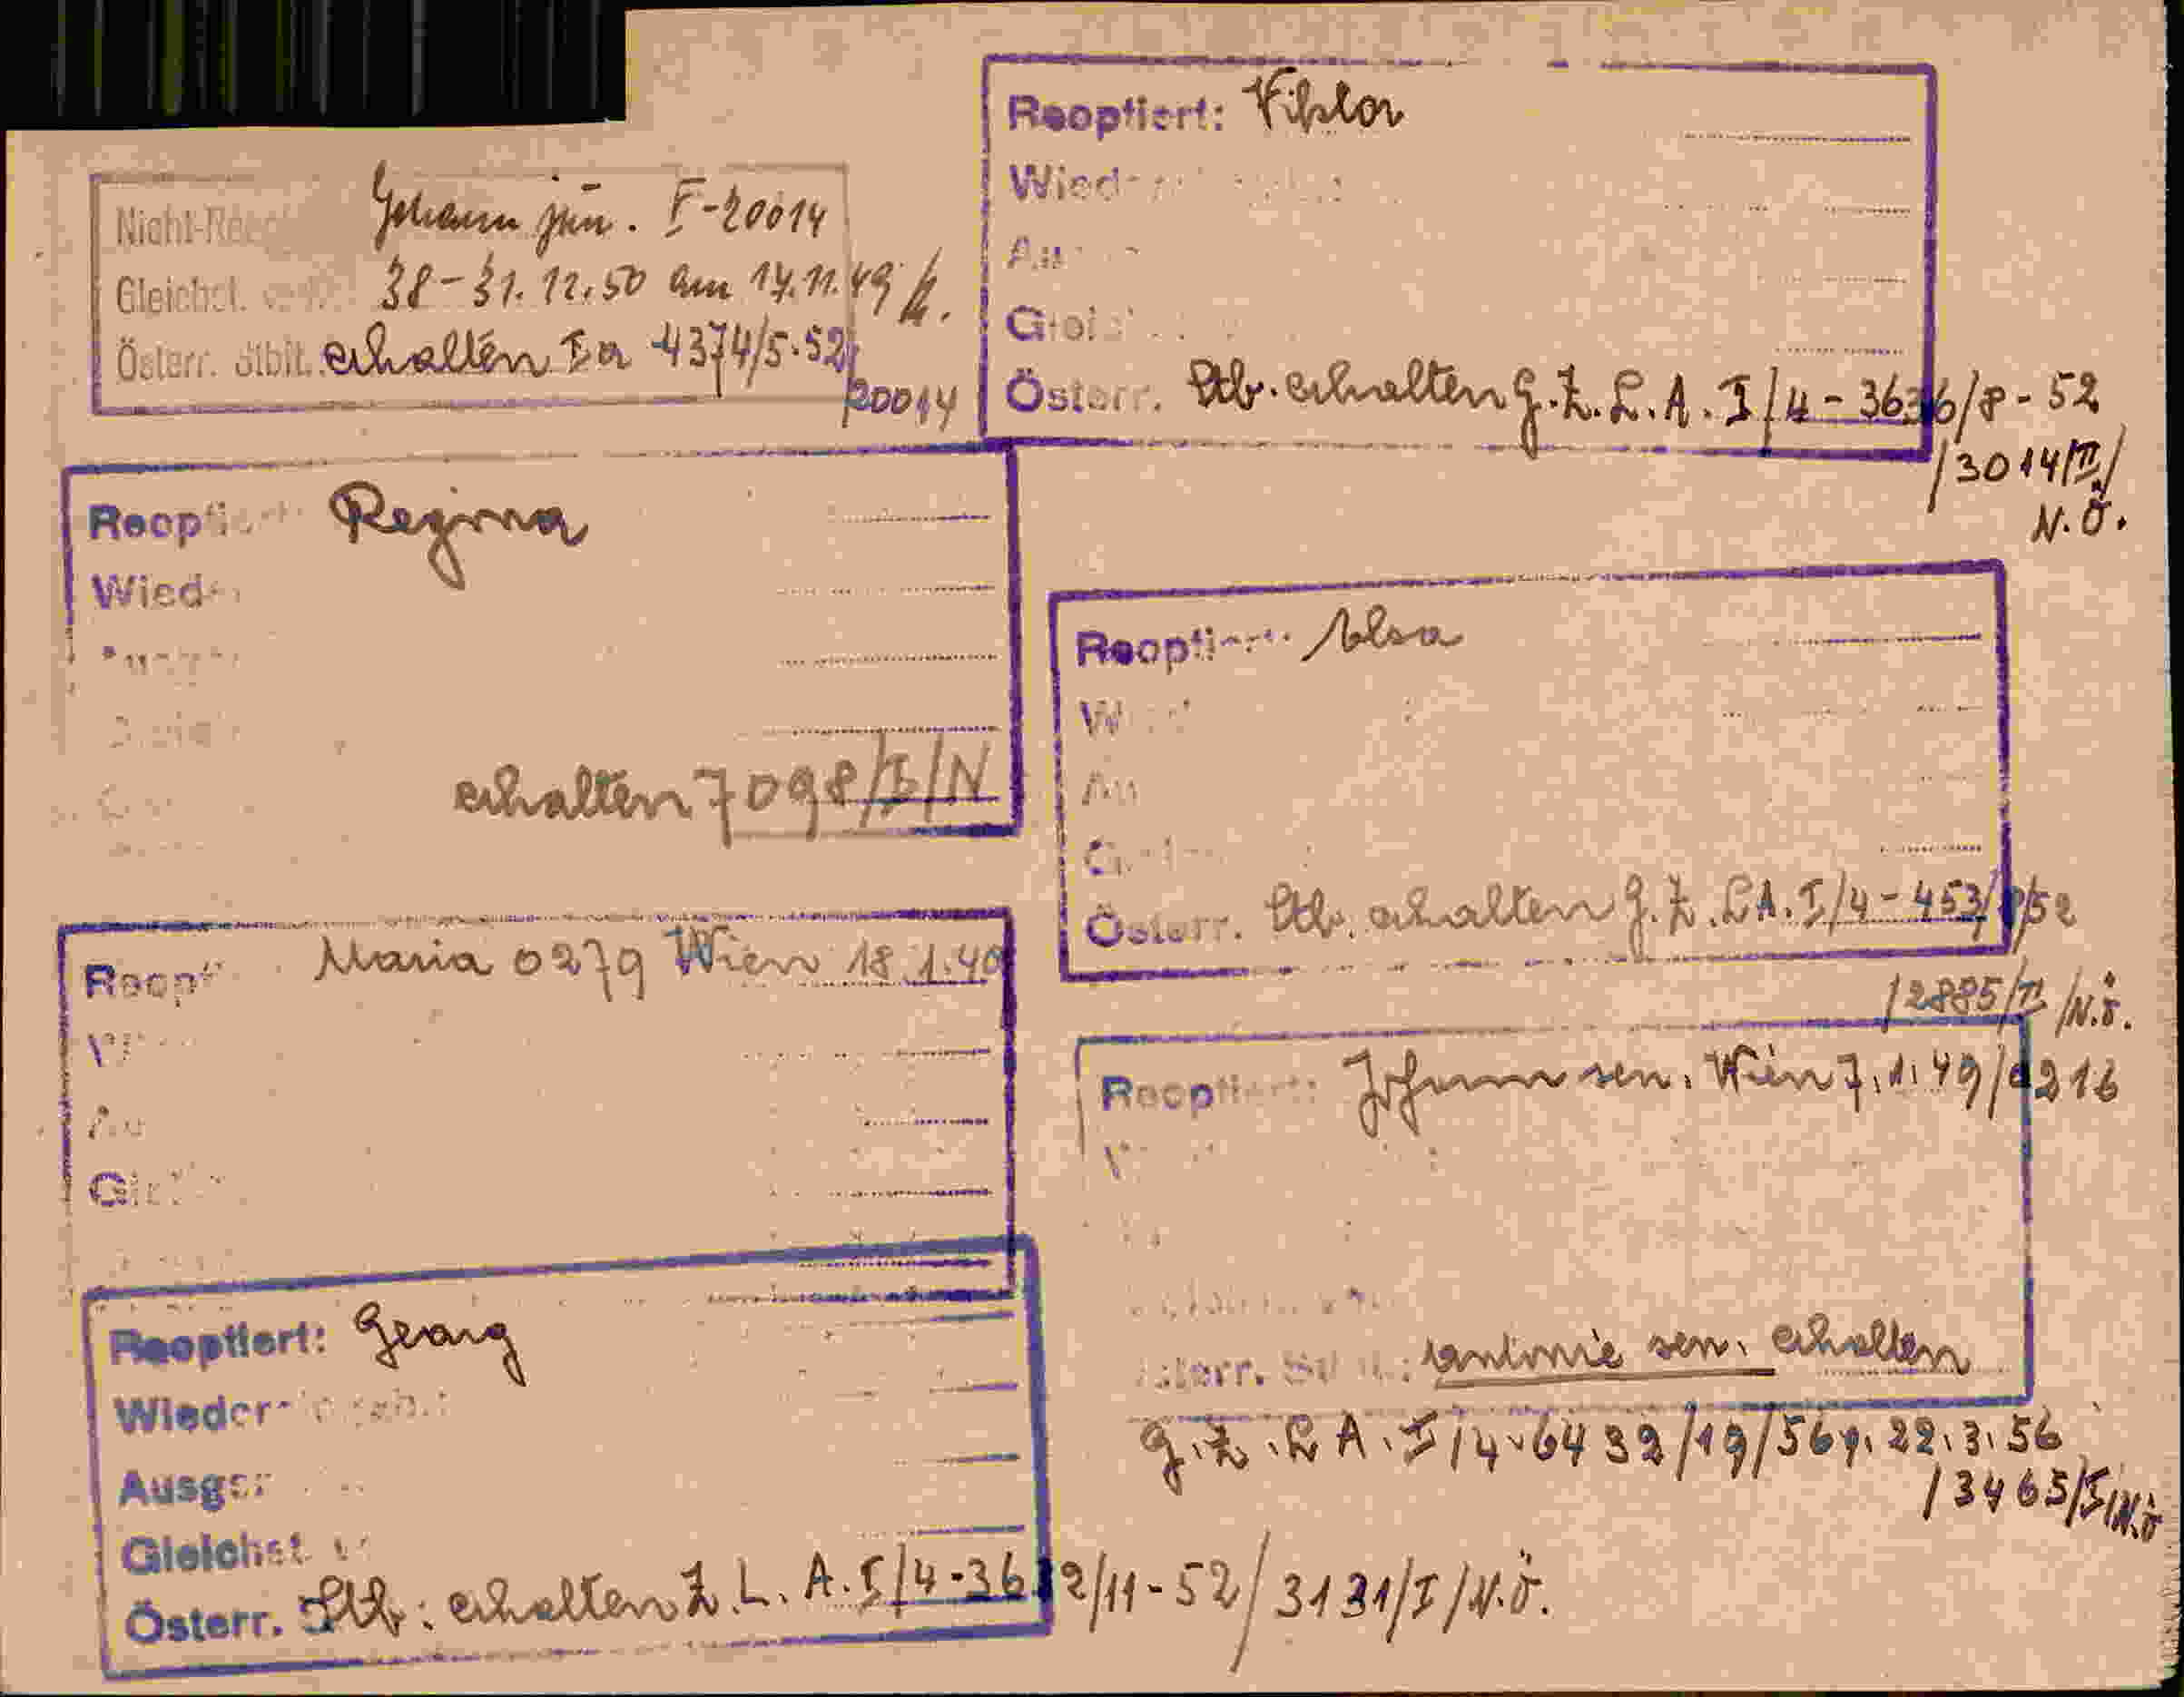 Johann jun. I-20014
Gleichst. 38-31.12.50 am 17.11.49
Österr. Stbit. erhalten Ia 4374/5.52/
/20014
Reoptiert: Viktor
Österr. Stb. erhalten G.Z.L.A. I/4-3636/8-52
/3014/II/
N.Ö.
Reoptiert Regina
Wied
erhalten 7098/I/N
Reoptiert:
Österr. Stb. erhalten G.Z. L.A. I/4-453/ /52
/2885/II /N.Ö.
Reopt Maria 0279 Wien 18.1.40
Reoptiert: Johann sen. Wien 7.1.49/0216
österr. antonie sen. erhalten
G.Z. L.A. I/4-6432/19/56 v. 22.3.56
/3465/I/N.Ö
Reoptiert: Georg
Wieder
Gleichst.
Österr. Stb: erhalten Z. L. A. I/4-36 2/11-52/3131/I/N.Ö.